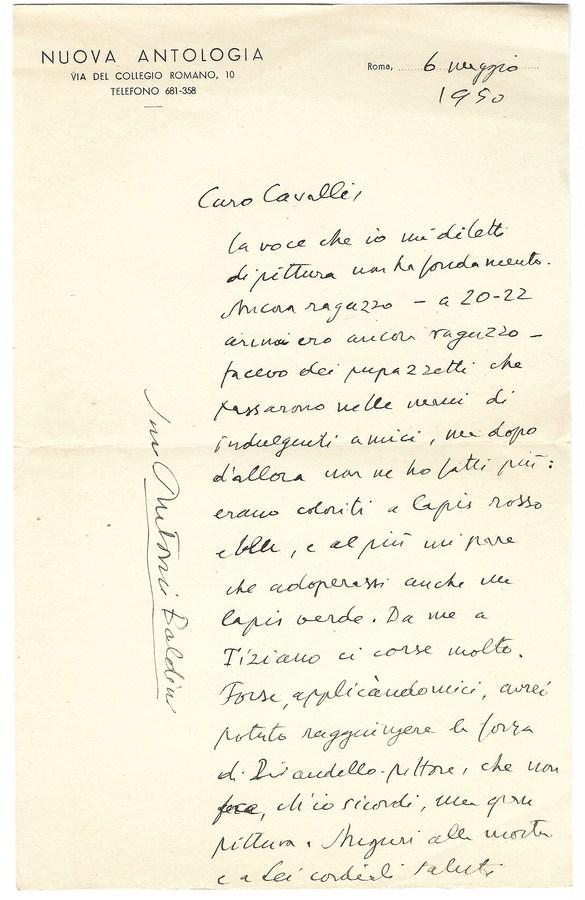 NUOVA ANTOLOGIA
VIA DEL COLLEGIO ROMANO, 10
TELEFONO 681-358
Roma, 6 maggio
1950
Caro Cavalli,
la voce che io mi diletti
di pittura non ha fondamento.
Ancora ragazzo — a 20-22
anni ero ancora ragazzo —
facevo dei pupazzetti che
passarono nelle mani di
indulgenti amici, ma dopo
d'allora non ne ho fatti più:
erano coloriti a lapis rosso
e blu, e al più mi pare
che adoperassi anche un
lapis verde. Da me a
Tiziano ci corse molto.
Forse, applicàndomici, avrei
potuto raggiungere la forza
di Pirandello-pittore, che non
fece, ch'io ricordi, una gran
pittura. Auguri alla mostra
e a Lei cordiali saluti
suo Antonio Baldini